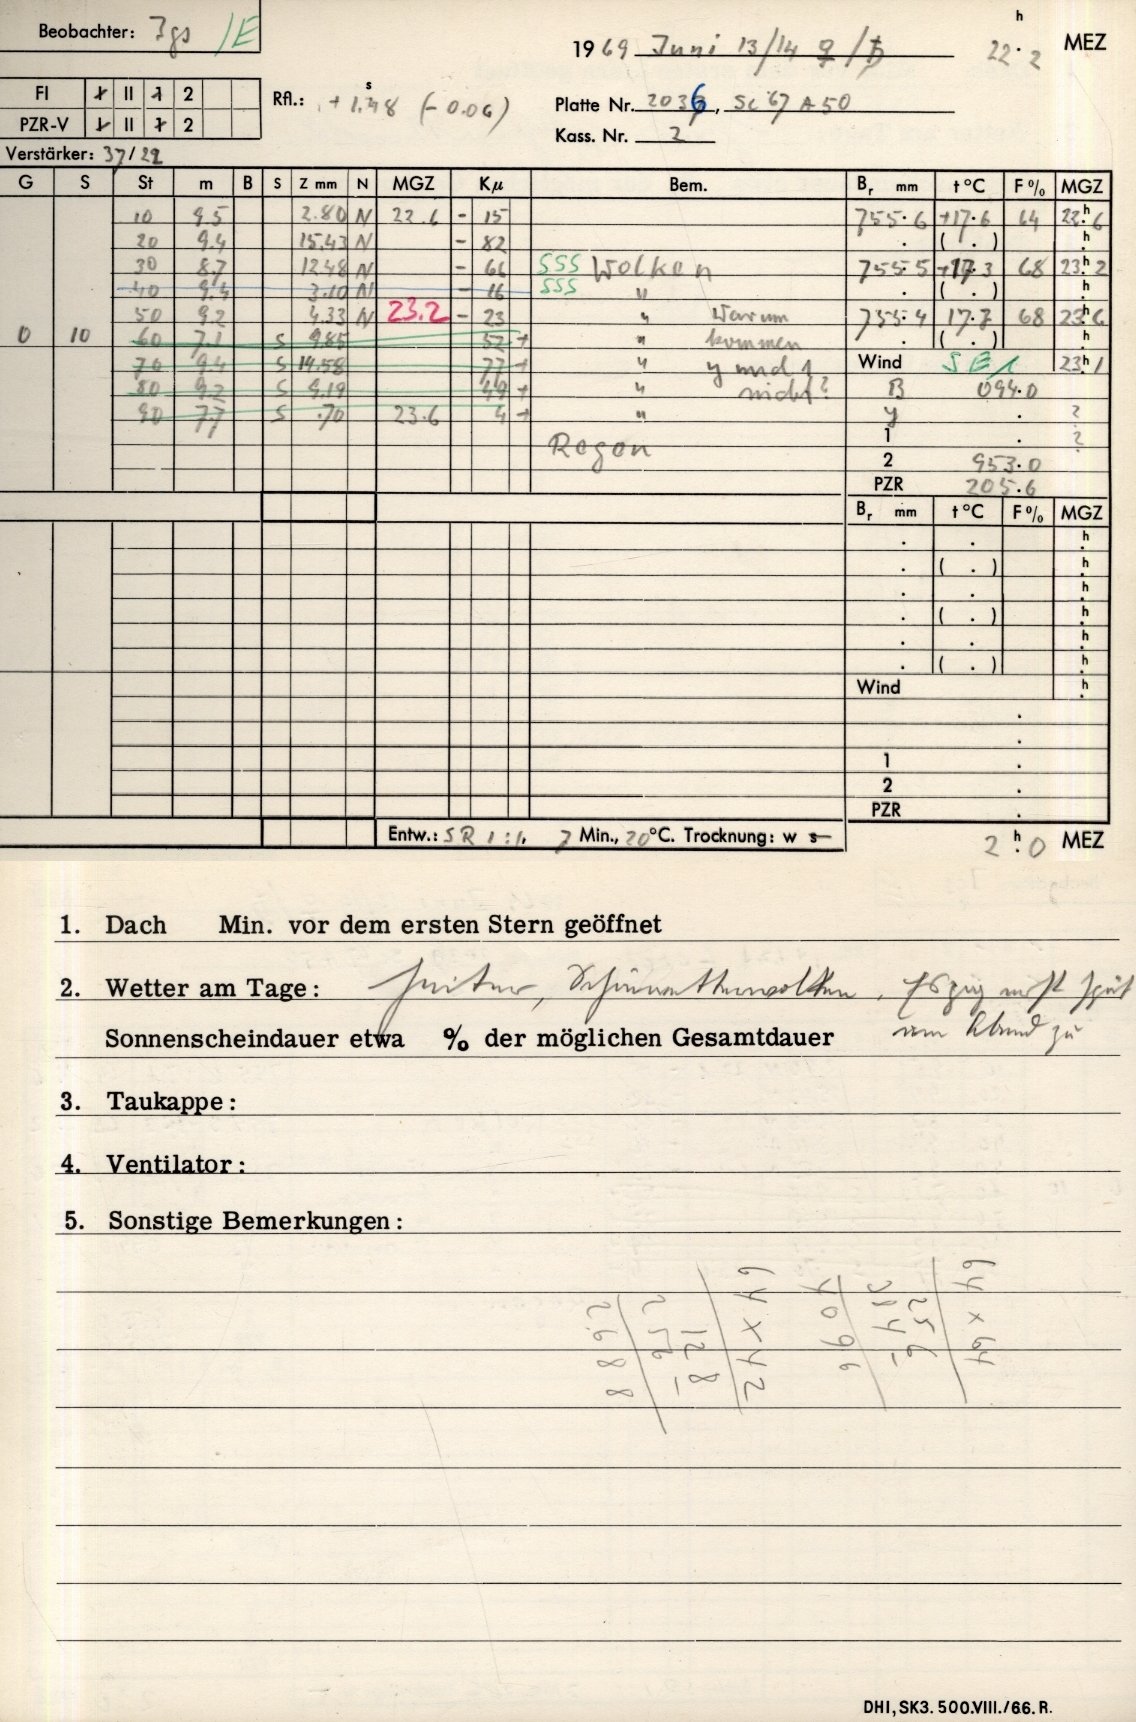 Beobachter: Jgs /E
1969 Juni 13/14 ♀/♄ 22.h2 MEZ
FI 1 II 1 2
PZR-V 1 II 1 2
Rfl.: +1.s48 (-0.06)
Platte Nr. 2036, Sc 67 A50
Kass. Nr. 2
Verstärker: 37/22
G S St m B S Z mm N MGZ Kµ Bem. Br mm t°C F% MGZ
10 9.5 2.80 N 22.6 - 15 755.6 +17.6 64 22.h6
20 9.4 15.43 N - 82 . ( . ) h
30 8.7 12.48 N - 66 SSS Wolken 755.5 +17.3 68 23.h2
40 9.4 3.10 N - 16 SSS " . ( . ) h
50 9.2 4.33 N 23.2 - 23 " Warum 755.4 17.7 68 23.h6
0 10 60 7.1 S 9.85 52 + " kommen . ( . ) h
70 9.4 S 14.58 77 + " y und 1 Wind SE 1 23.h1
80 9.2 S 9.19 49 + " nicht? B 094.0
90 7.7 S .70 23.6 4 + " y . ?
1 . ?
Regen
2 953.0
PZR 205.6
Br mm t°C F% MGZ
. . h
. ( . ) h
. . h
. ( . ) h
. . h
. ( . ) h
Wind h
.
.
1 .
2 .
PZR .
Entw.: SR 1:4, 7 Min., 20°C. Trocknung: w s 2.h0 MEZ
1. Dach Min. vor dem ersten Stern geöffnet
2. Wetter am Tage: heiter, Schönwetterwolken, Es zog erst spät
Sonnenscheindauer etwa % der möglichen Gesamtdauer am Abend zu
3. Taukappe:
4. Ventilator:
5. Sonstige Bemerkungen:
64 × 64
256
384-
4096
64 × 42
128
256-
2688
DHI, SK3. 500.VIII./66. R.